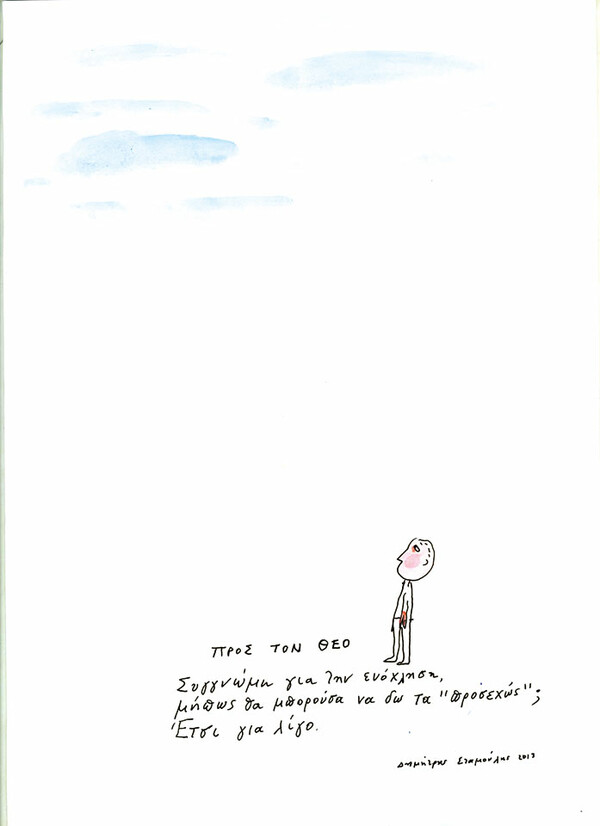 ΠΡΟΣ ΤΟΝ ΘΕΟ
Συγγνώμη για την ενόχληση,
μήπως θα μπορούσα να δω τα "προσεχώς";
Έτσι για λίγο.
Δημήτρης Σταμούλης 2013